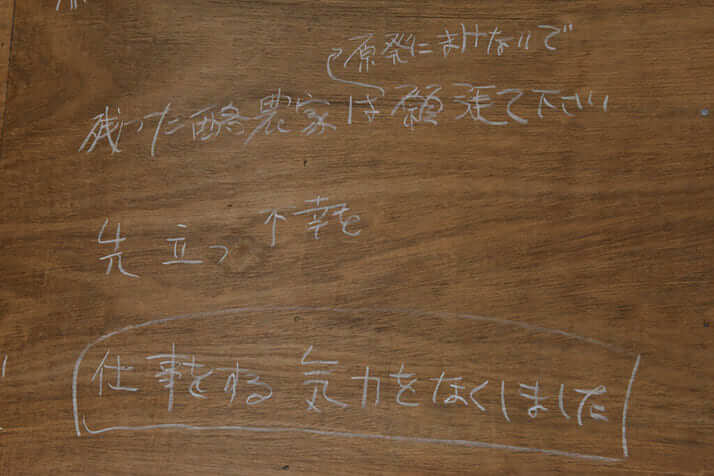 原発にまけないで
残った酪農家は願張て下さい
先立つ不幸を
仕事をする気力をなくしました